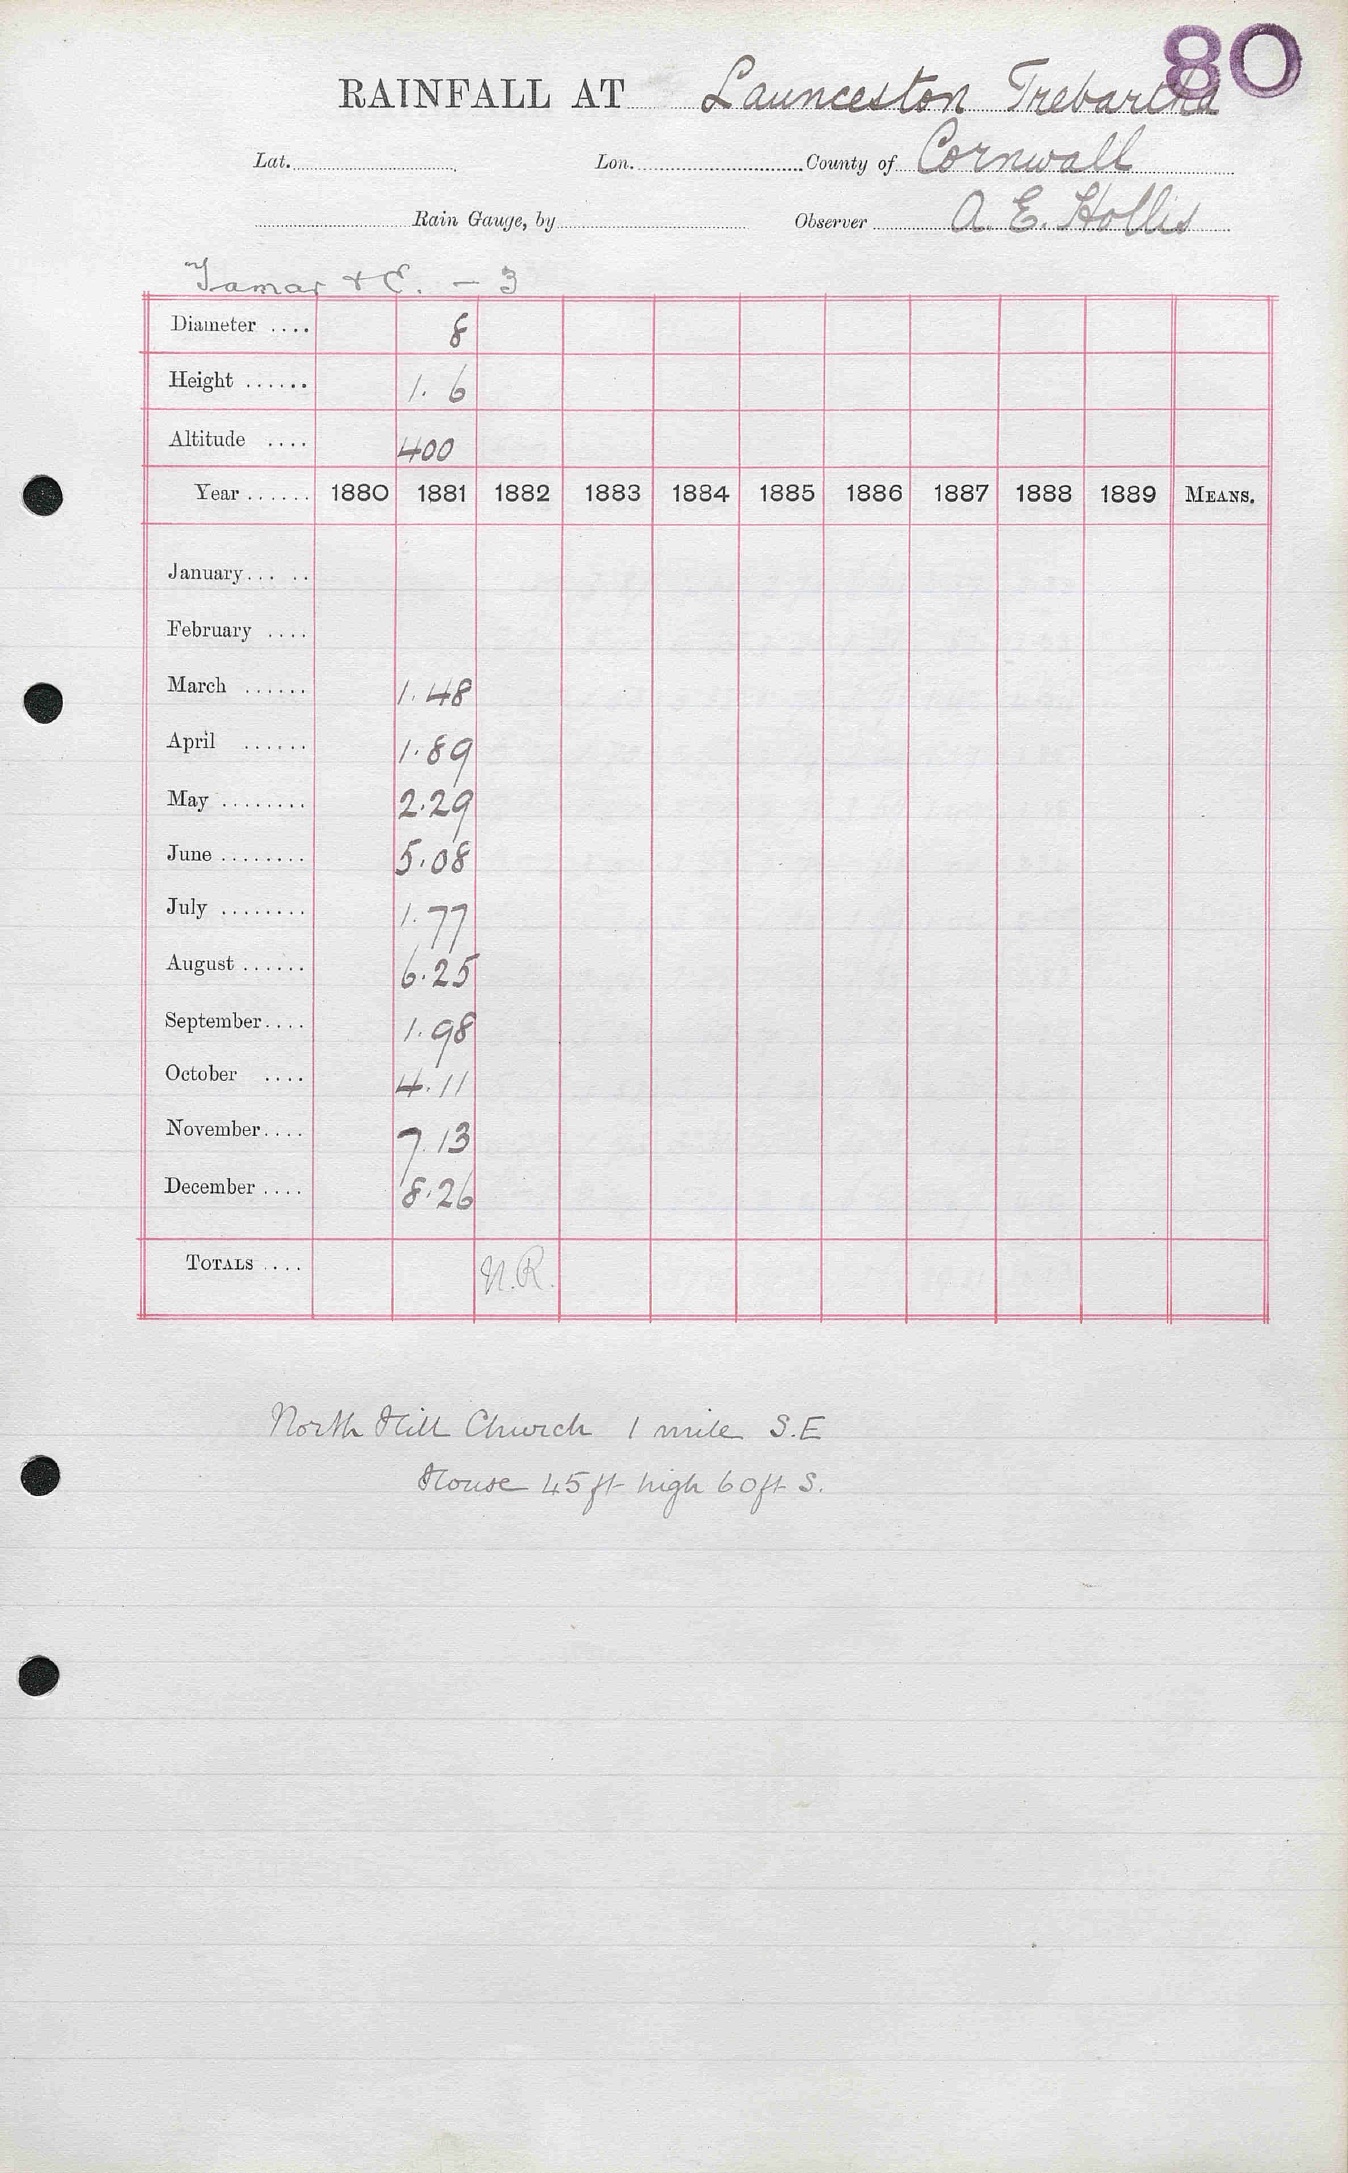 80
RAINFALL AT Launceston Trebartha
Lat. Lon. County of Cornwall
Rain Gauge, by Observer A. E. Hollis
Tamar & E. - 3
Diameter .... 8
Height ...... 1. 6
Altitude .... 400
Year ...... 1880 1881 1882 1883 1884 1885 1886 1887 1888 1889 MEANS.
January... ..
February ....
March ...... 1.48
April ...... 1.89
May ........ 2.29
June ........ 5.08
July ........ 1.77
August ...... 6.25
September.... 1.98
October .... 4.11
November.... 7.13
December .... 8.26
TOTALS .... N.R.
North Hill Church 1 mile S.E
House 45 ft high 60 ft S.